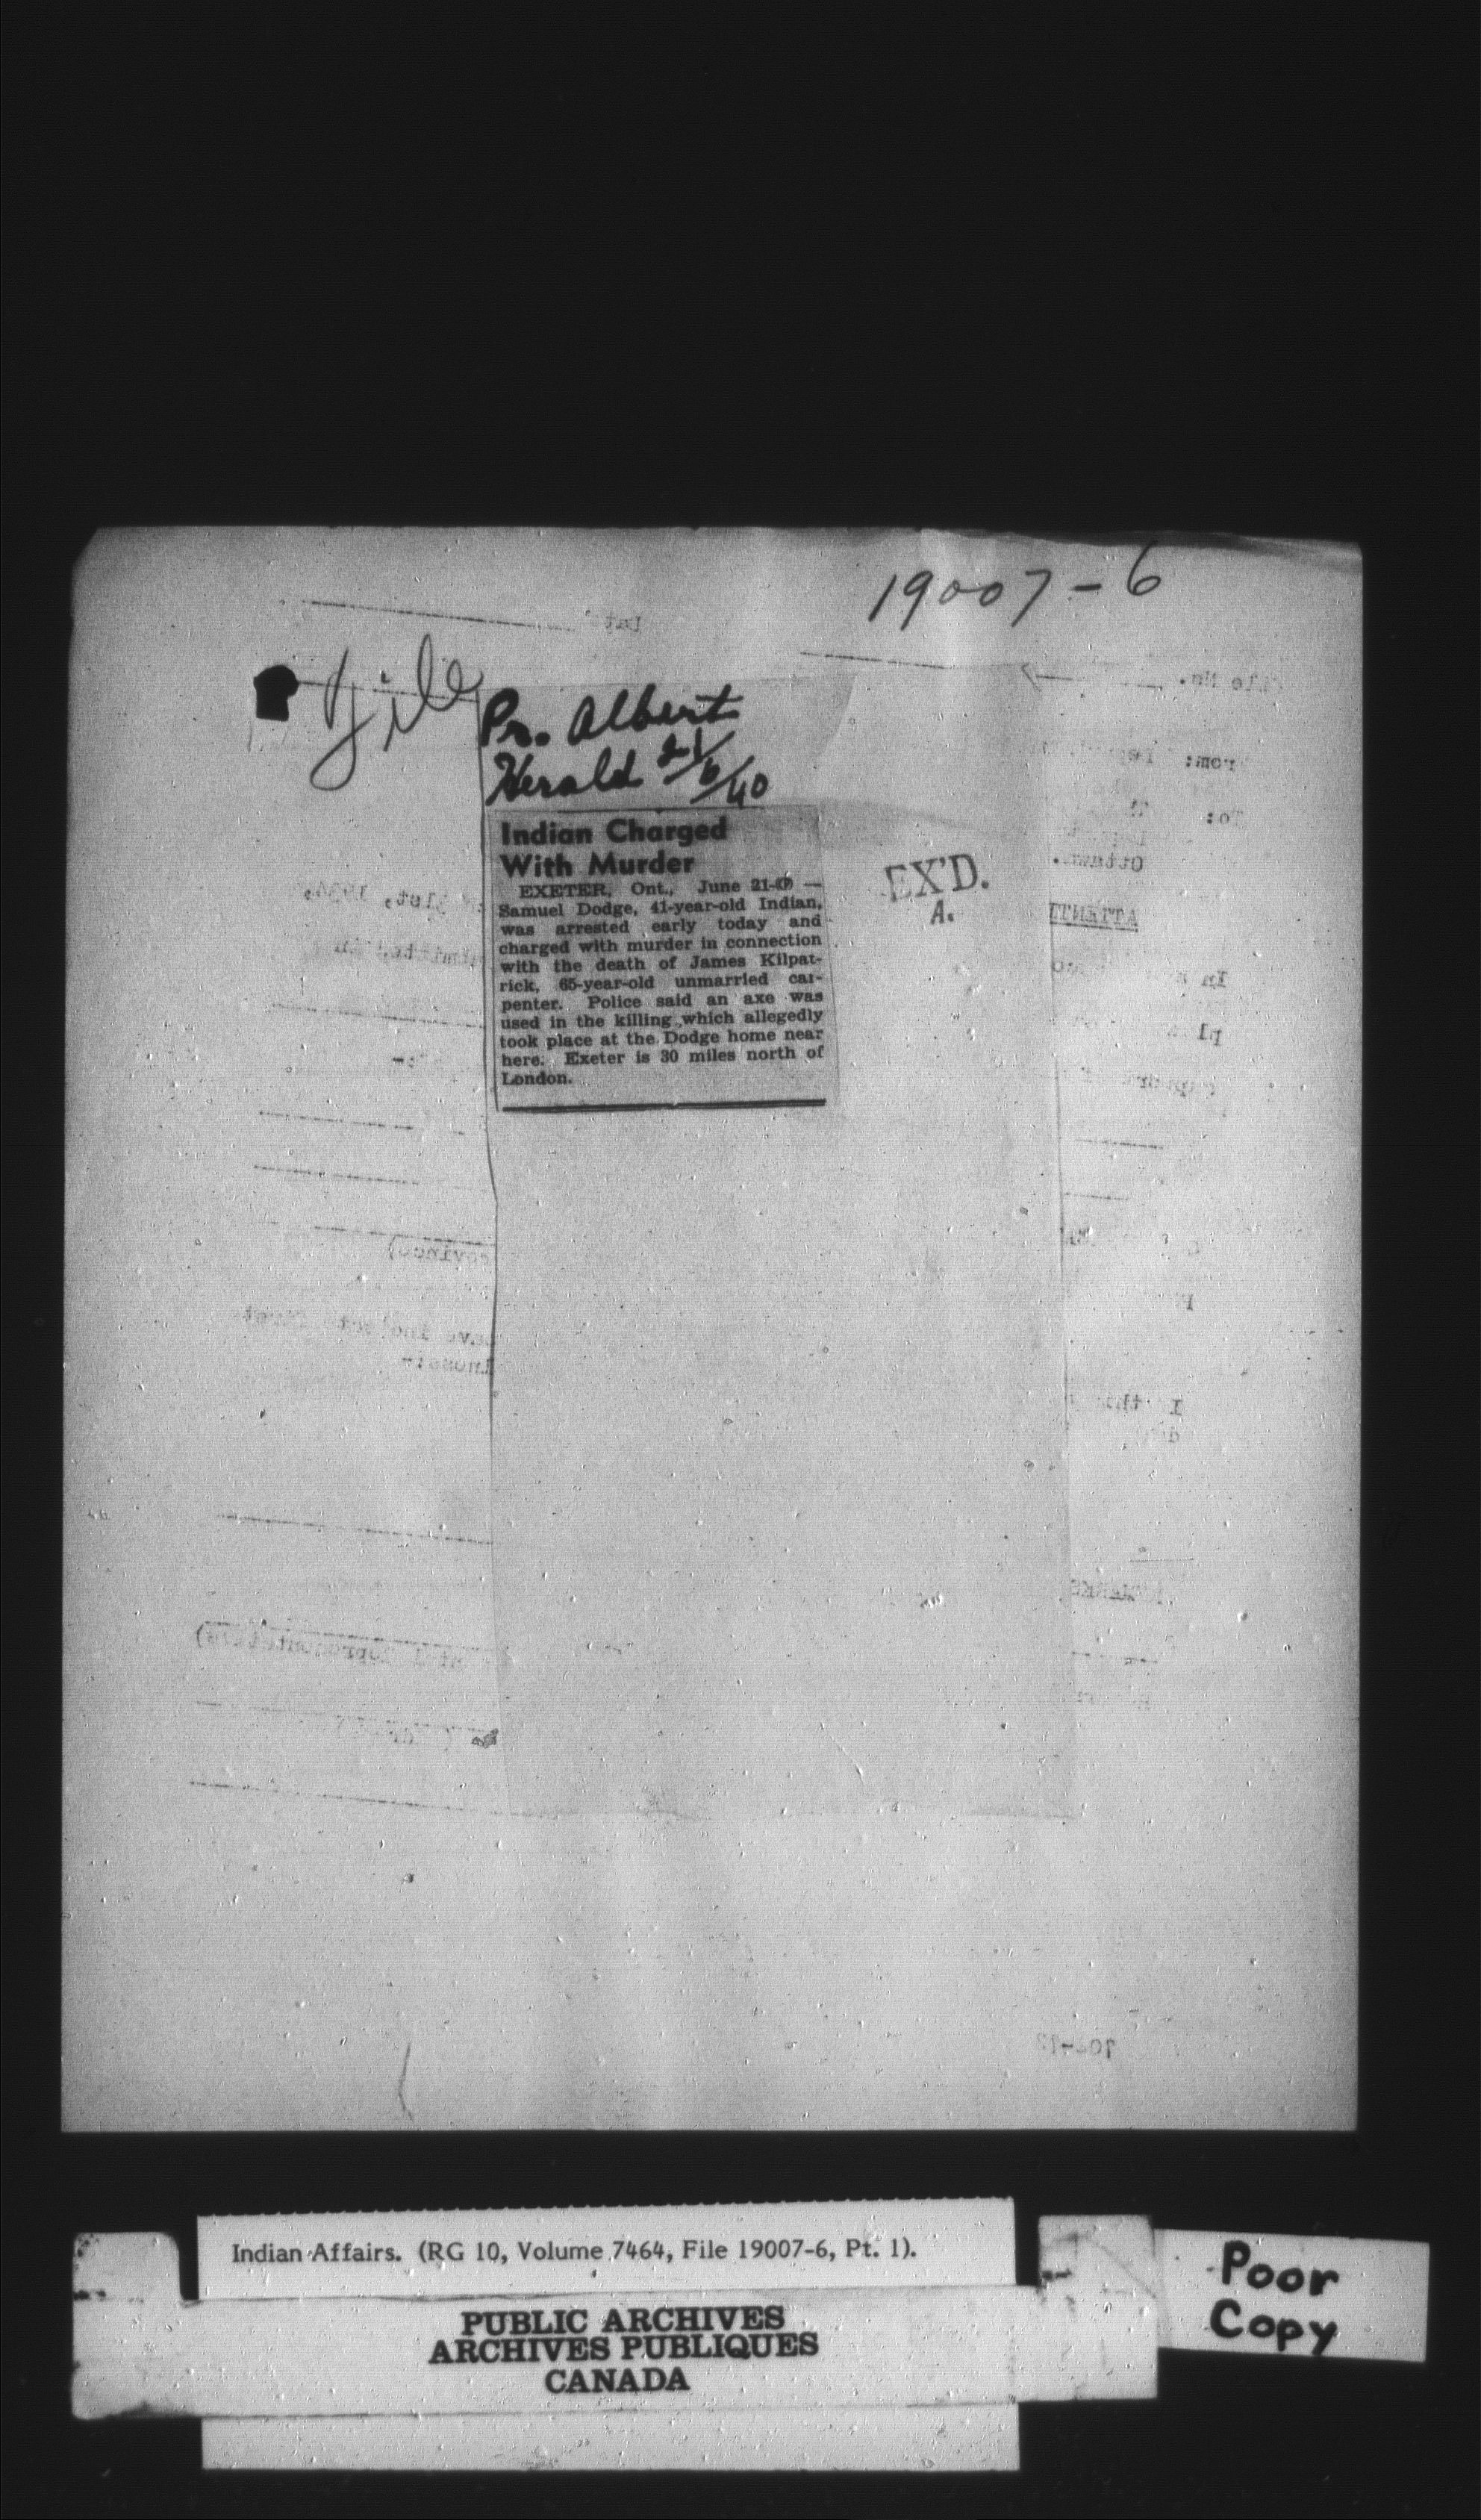 19007-6
File
Pr. Albert
Herald 21/6/40
Indian Charged
With Murder
EXETER, Ont., June 21-CP —
Samuel Dodge, 41-year-old Indian,
was arrested early today and
charged with murder in connection
with the death of James Kilpat-
rick, 65-year-old unmarried car-
penter. Police said an axe was
used in the killing which allegedly
took place at the Dodge home near
here. Exeter is 30 miles north of
London.
EX'D.
A.
Indian Affairs. (RG 10, Volume 7464, File 19007-6, Pt. 1).
PUBLIC ARCHIVES
ARCHIVES PUBLIQUES
CANADA
Poor
Copy